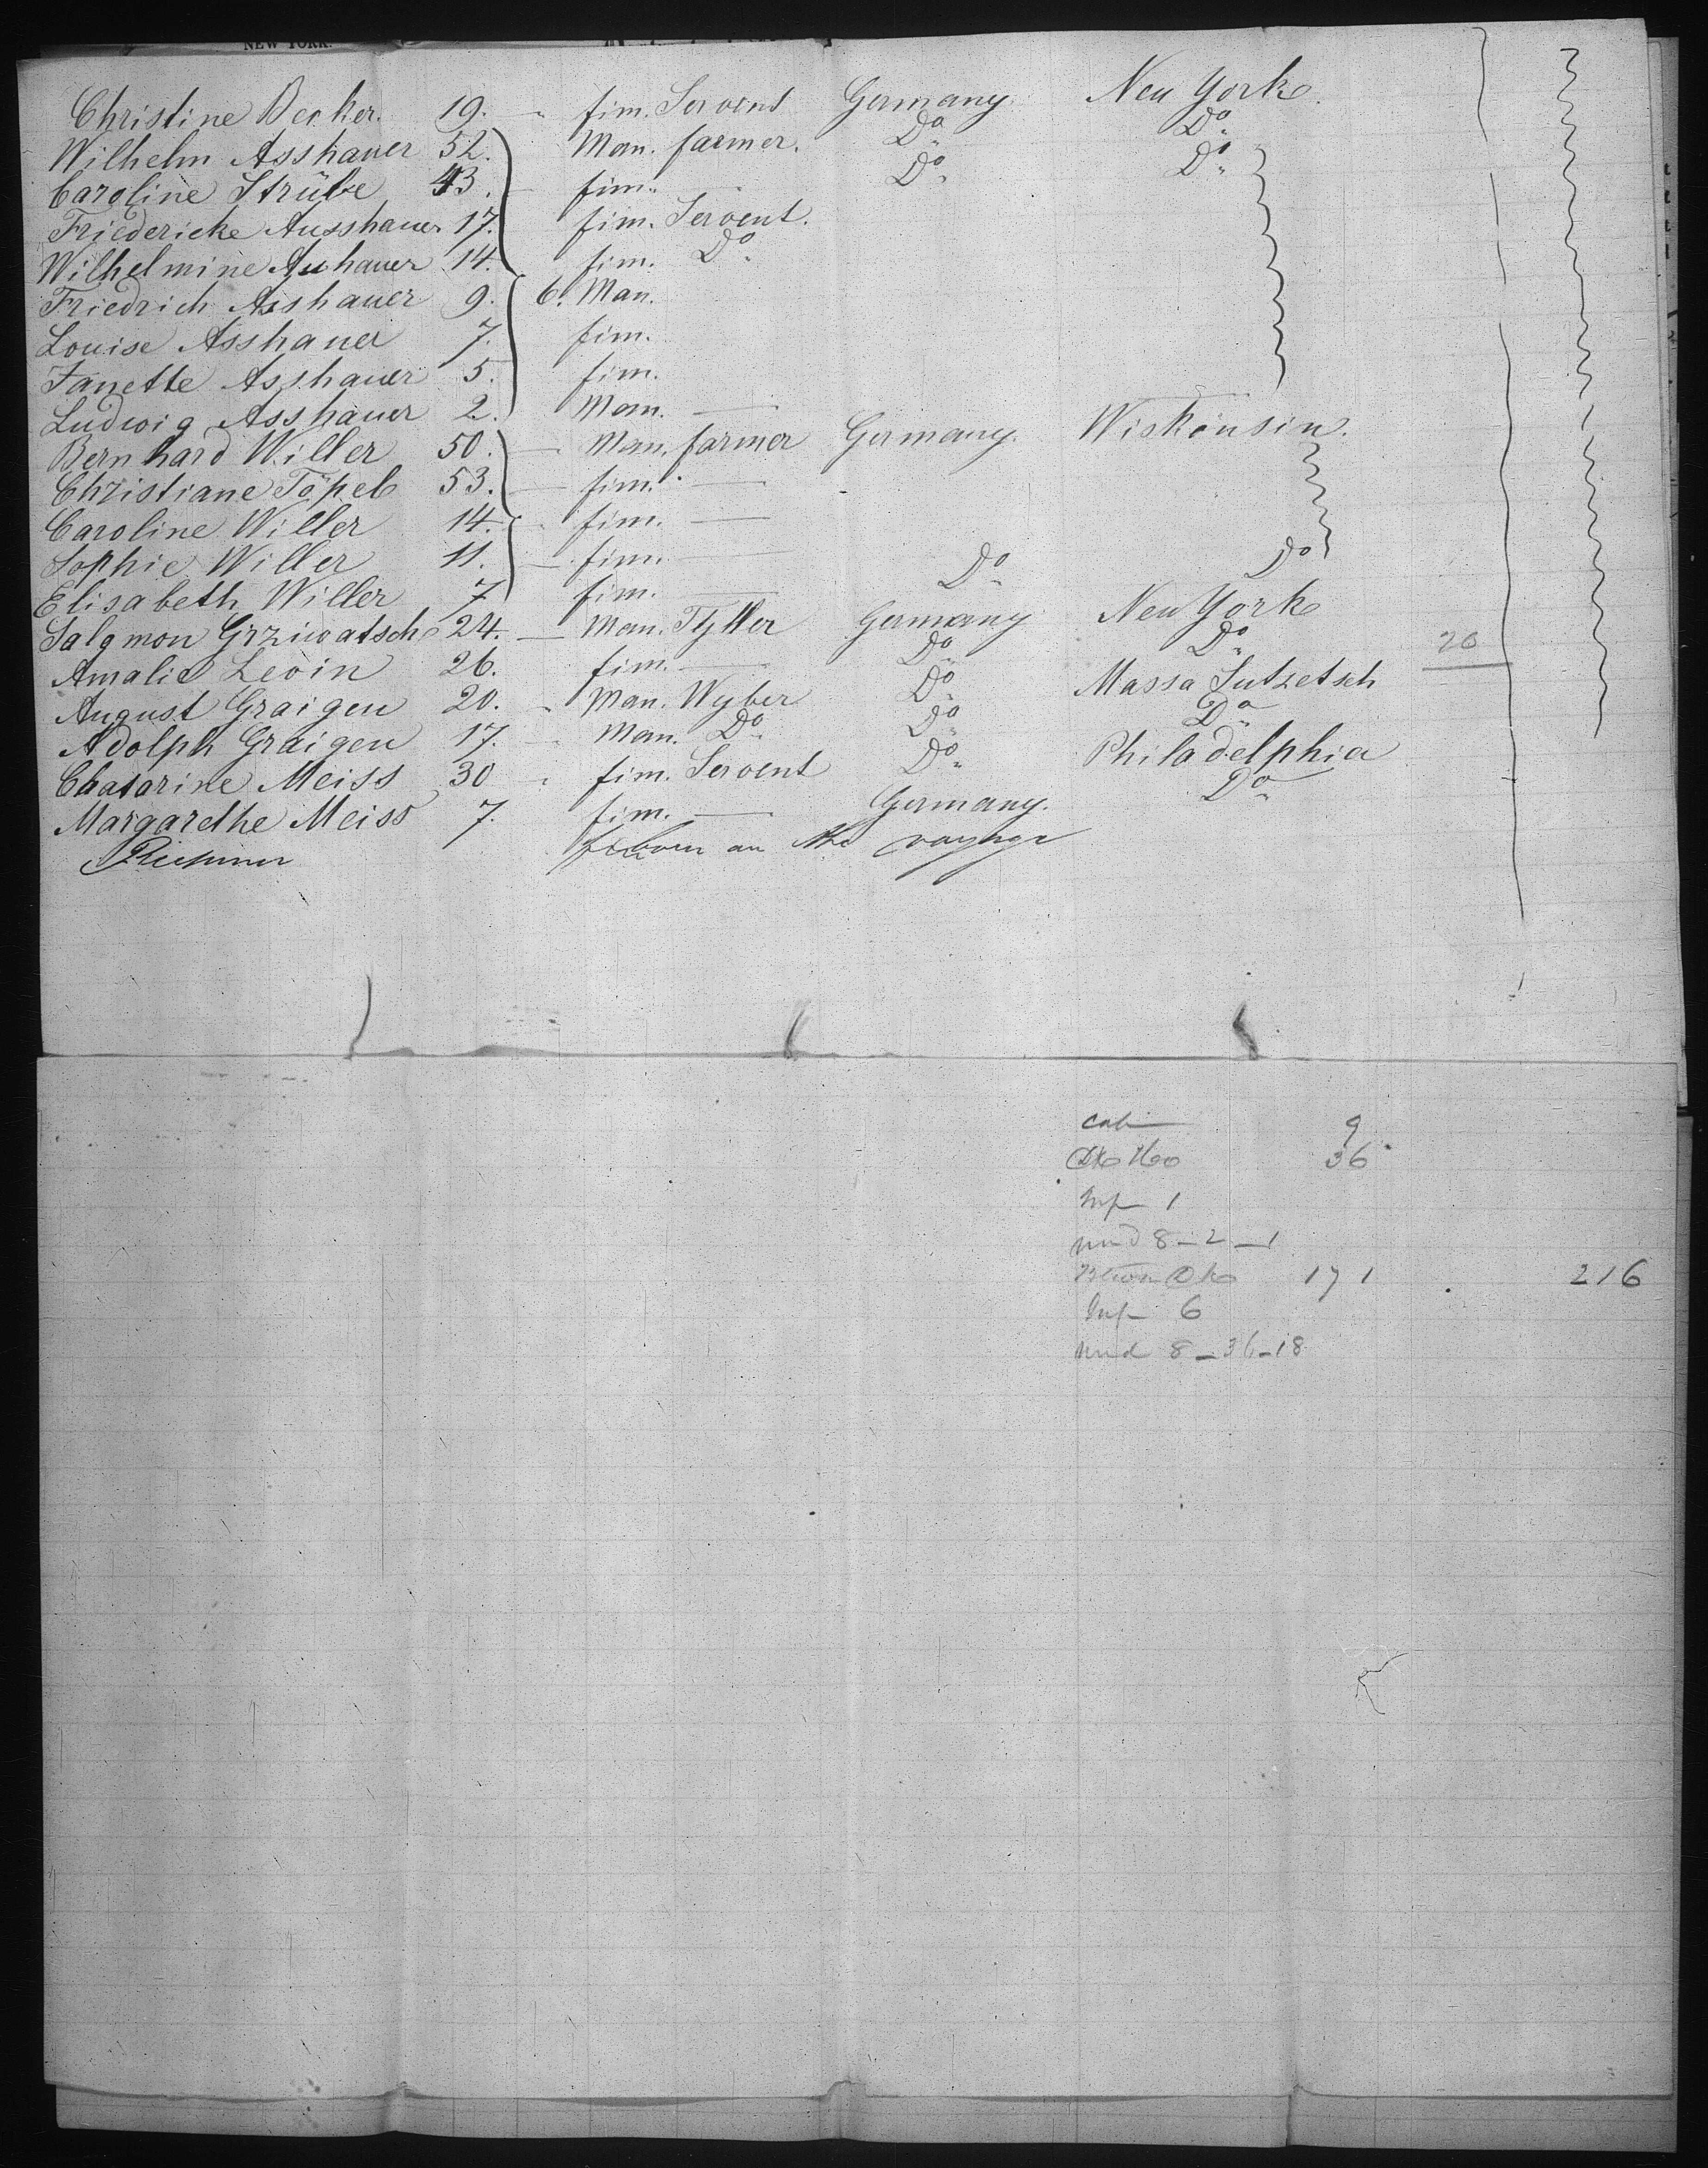 NEW YORK.
Christine Becker. 19. " fim. Servent Germany. New York.
Wilhelm Asshauer 52. Man. farmer. Do Do
Caroline Strübe 43. fim. Do Do
Friedericke Ausshauer 17. fim. Servent.
Wilhelmine Auhauer 14. fim. Do
Friedrich Asshauer 9. 6. Man.
Louise Asshauer 7. fim.
Janette Asshauer 5. fim.
Ludwig Asshauer 2. Man. —
Bernhard Willer 50. — Man. farmer Germany. Wiskonsin.
Christiane Töpel 53. — fim. —
Caroline Willer 14. fim. —
Sophie Willer 11. — fim. — Do Do
Elisabeth Willer 7 fim. —
Salomon Grziwatsch 24. — Man. Germany New York
Amalie Levin 26. fim. — Do Do 26
August Graigen 20. " Man. Wyber Do Massa Sutzetsch
Adolph Graigen 17. " Man. Do Do Do
Chatarine Meiss 30 " fim. Servent Do Philadelphia
Margarethe Meiss 7. fim. — Germany. Do
born on the voyage
cab 9
36
Inf 1
8 – 2 – 1
171 216
Inf 6
8 – 36 – 18